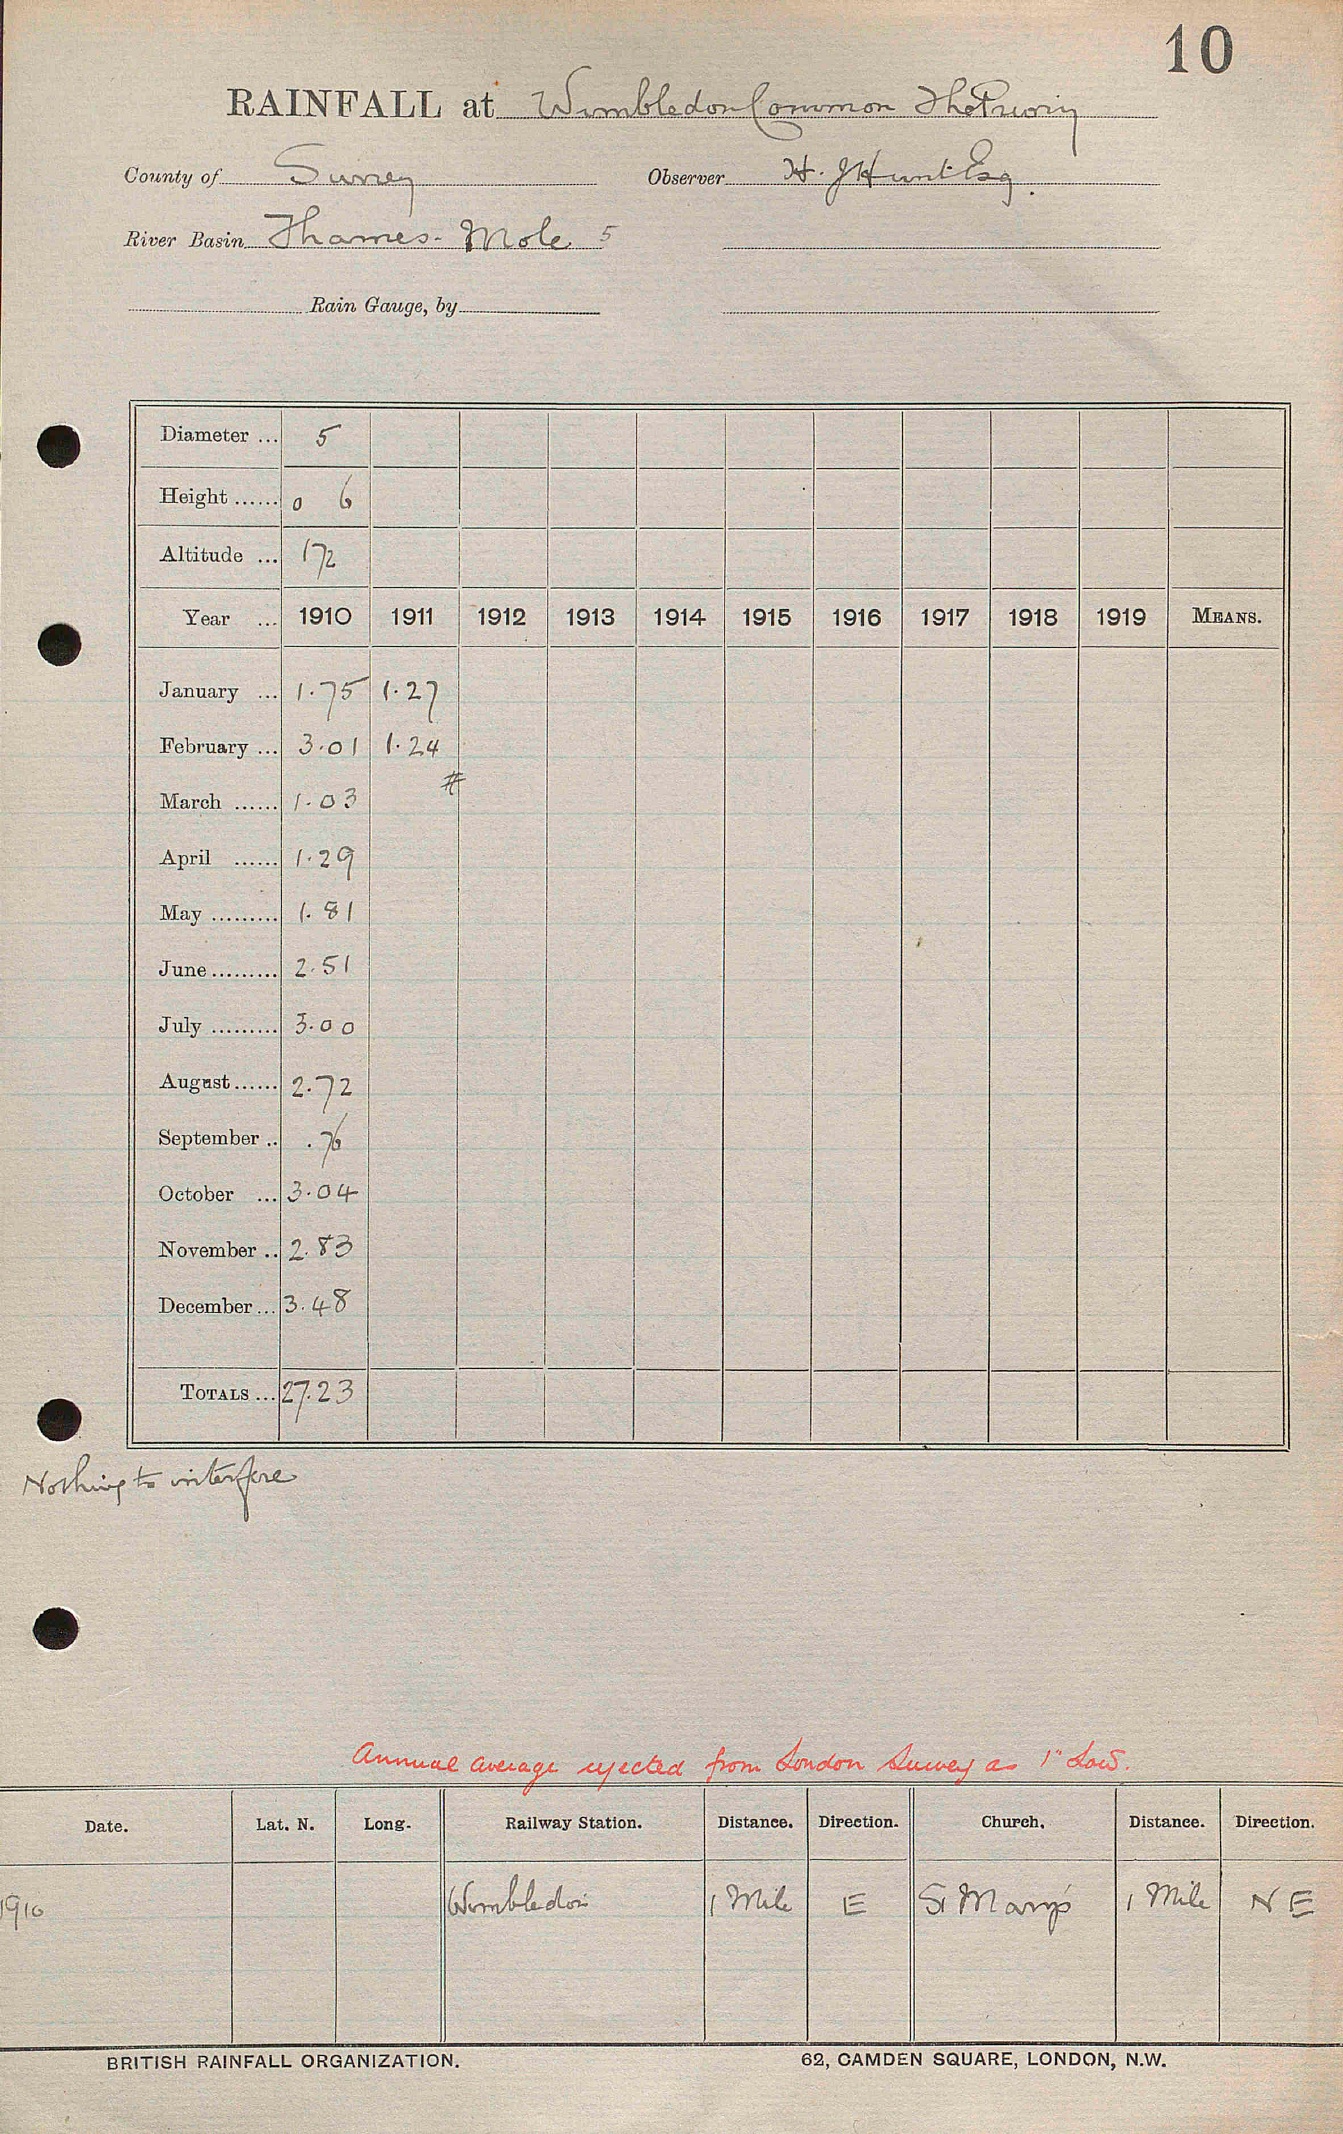 10
RAINFALL at Wimbledon Common The
County of Surrey Observer H. J Hunt Esq.
River Basin Thames - Mole 5
Rain Gauge, by
Diameter ... 5
Height ...... 0 6
Altitude ... 172
Year ... 1910 1911 1912 1913 1914 1915 1916 1917 1918 1919 MEANS.
January ... 1.75 1.27
February ... 3.01 1.24
#
March ...... 1.03
April ...... 1.29
May ......... 1.81
June ......... 2.51
July ......... 3.00
August ...... 2.72
September .. .76
October ... 3.04
November .. 2.83
December ... 3.48
TOTALS ... 27.23
Nothing to interfere
Annual average rejected from London Survey as 1" Low.
Date. Lat. N. Long. Railway Station. Distance. Direction. Church. Distance. Direction.
1910 Wimbledon 1 Mile E St Mary's 1 Mile NE
BRITISH RAINFALL ORGANIZATION. 62, CAMDEN SQUARE, LONDON, N.W.